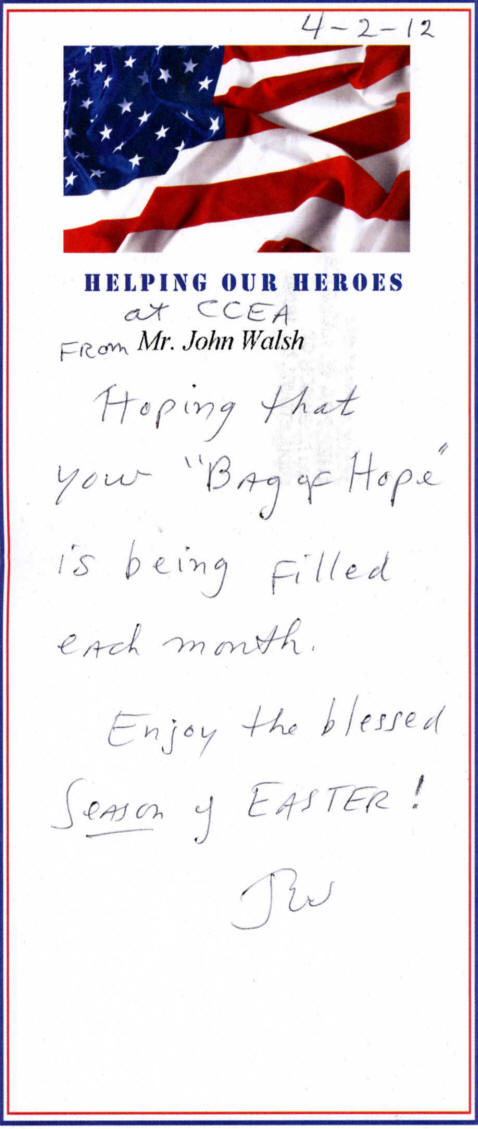 4-2-12
HELPING OUR HEROES
at CCEA
FROM Mr. John Walsh
Hoping that
your "Bag of Hope"
is being filled
each month.
Enjoy the blessed
Season of EASTER!
JW